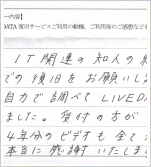 ー内容】
MTA 復旧サービスご利用の動機、ご利用後のご感想など
IT関連の知人の
での復旧をお願いし
自力で調べてLIVED
ました。受付の方が
4年分のビデオも全て
本当に感謝いたしま